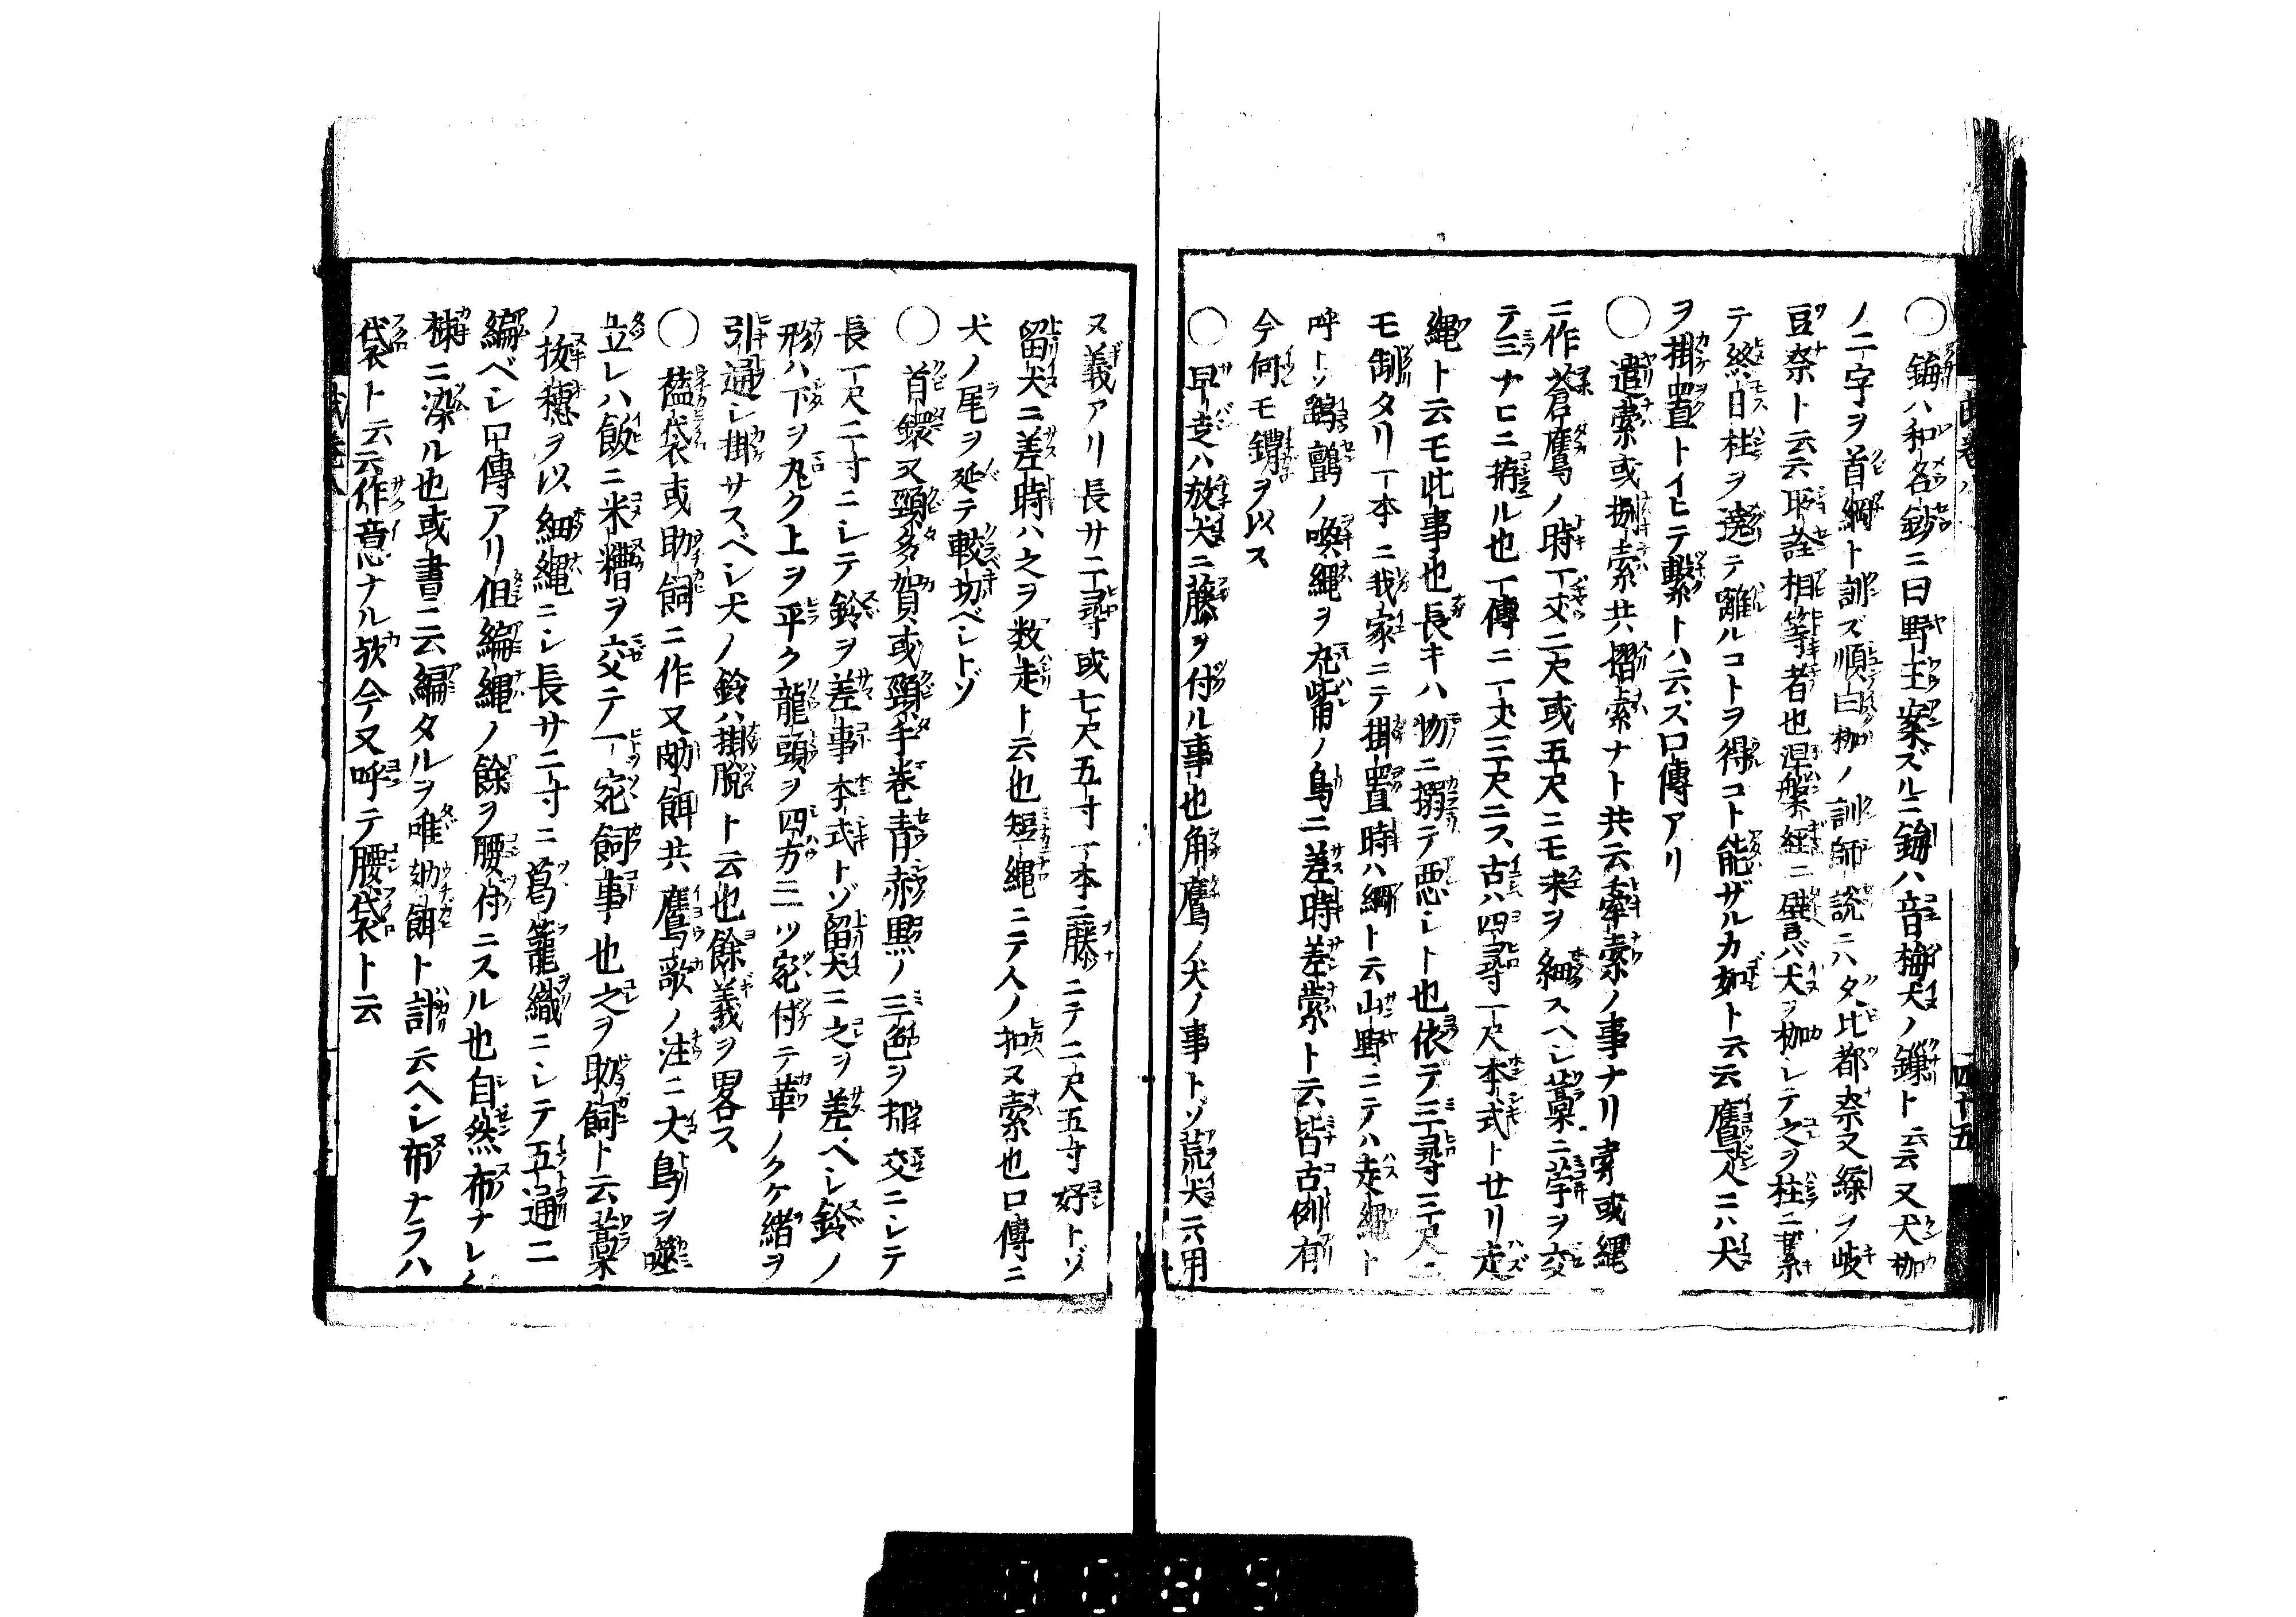 ○鋂ハ和名鈔ニ曰野王案ズルニ鋂ハ音梅犬ノ鏁ト云云又犬枷
ノ二字ヲ首綱ト訓ズ順曰枷ノ訓師説ニハタ比都奈又綵ヲ岐
豆奈ト云云取詮相等者也涅槃経ニ譬バ犬ヲ枷シテ之ヲ柱ニ繋
テ終日柱ヲ遶テ離ルコトヲ得コト能ザルカ如ト云云鷹人ニハ犬
ヲ掛置トイヒテ繋トハ云ズ口傳アリ
○遣索或捌索共摺索ナト共云牽索ノ事ナリ索或縄
ニ作蒼鷹ノ時一丈二尺或五尺ニモ末ヲ細スヘシ藁ニ苧ヲ交
テ三ナヒニ揃ル也一傳ニ一丈三尺ニス古ハ四尋一尺本式トセリ走
縄ト云モ此事也長キハ物ニ搦テ悪シト也依テ三尋三尺ニ
モ制タリ一本ニ我家ニテ掛置時ハ綱ト云山野ニテハ走縄ト
呼トソ鷂鸇ノ喚縄ヲ兄鷂ノ鳥ニ差時差索ト云皆古例有
今何モ鐗ヲ以ス
○早走ハ放犬ニ藤ヲ付ル事也角鷹ノ犬ノ事トゾ荒犬ニ用
ヌ義アリ長サ一尋或七尺五寸一本ニ藤ニテ二尺五寸好トゾ
留犬ニ差時ハ之ヲ数走ト云也短縄ニテ人ノ扣ヌ索也口傳ニ
犬ノ尾ヲ延テ較切ベシトゾ
○首鐶又頸多賀或頸手巻青赤黒ノ三色ヲ搱交ニシテ
長一尺二寸ニシテ鈴ヲ差事本式トゾ留犬ニ之ヲ差ベシ鈴ノ
形ハ下ヲ丸ク上ヲ平ク龍頭ヲ四方ニツ宛付テ革ノクケ緒ヲ
引通シ掛サスベシ犬ノ鈴ハ掛脱ト云也餘義ヲ畧ス
○藍袋或助飼ニ作又劾餌共鷹歌ノ注ニ大鳥ヲ噬
立レハ飯ニ米糟ヲ交テ一宛飼事也之ヲ助飼ト云藁
ノ抜穂ヲ以細縄ニシ長サ二寸ニ葛籠織ニシテ五通ニ
編ベシ口傳アリ但編縄ノ餘ヲ腰付ニスル也自然布ナレハ
梂ニ染ル也或書ニ云編タルヲ唯劾餌ト計云ヘシ布ナラハ
袋ト云云作意ナル歟今又呼テ腰袋ト云
四十五